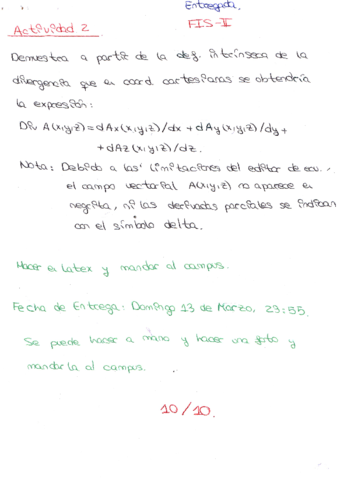 Entregada.
FIS-II
Actividad 2
Demuestra a partir de la def. intrínseca de la
divergencia que en coord. cartesianas se obtendría
la expresión:
Div A(x,y,z)=dAx(x,y,z)/dx + dAy(x,y,z)/dy +
+ dAz(x,y,z)/dz.
Nota: Debido a las limitaciones del editor de ecu.
el campo vectorial A(x,y,z) no aparece en
negrita, ni las derivadas parciales se indican
con el símbolo delta.
Hacer en Latex y mandar al campus.
Fecha de Entrega: Domingo 13 de Marzo, 23:55.
Se puede hacer a mano y hacer una foto y
mandarla al campus.
10/10.